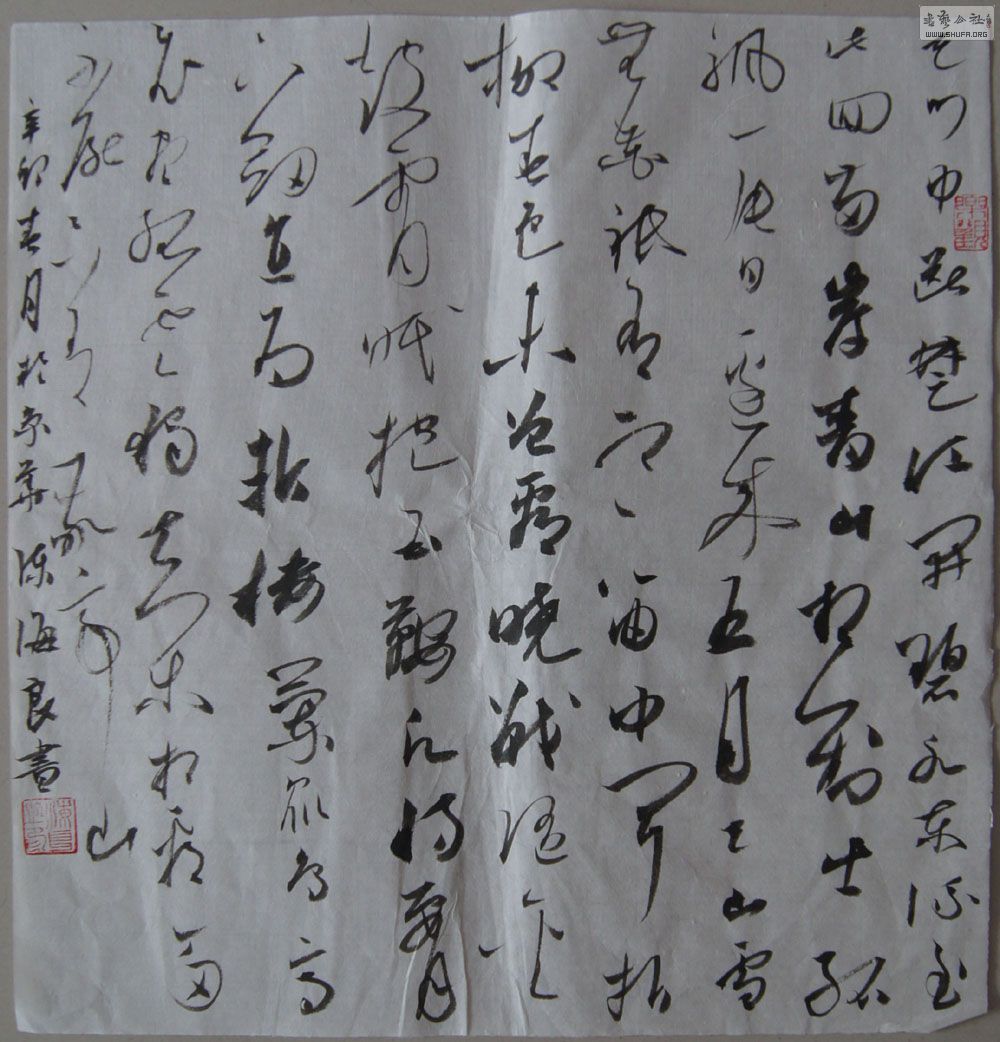 書藝公社
WWW.SHUFA.ORG
天门中断楚江開碧水东流至
此回两岸青山相對出孤
帆一片日边来五月天山雪
無花祇有寒笛中闻折
柳春色未曾看曉战随金
鼓宵眠抱玉鞍願將腰
下劍直为斩楼蘭众鸟高
飛盡孤云獨去闲相看两
不厭只有敬亭山
辛卯春月於京華陈海良書